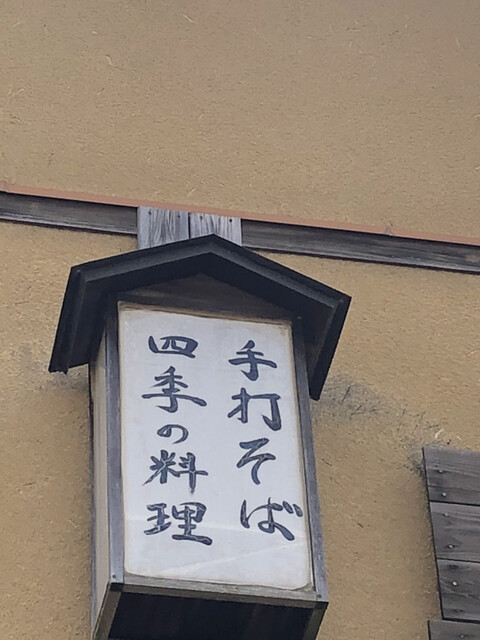 手打そば
四季の料理